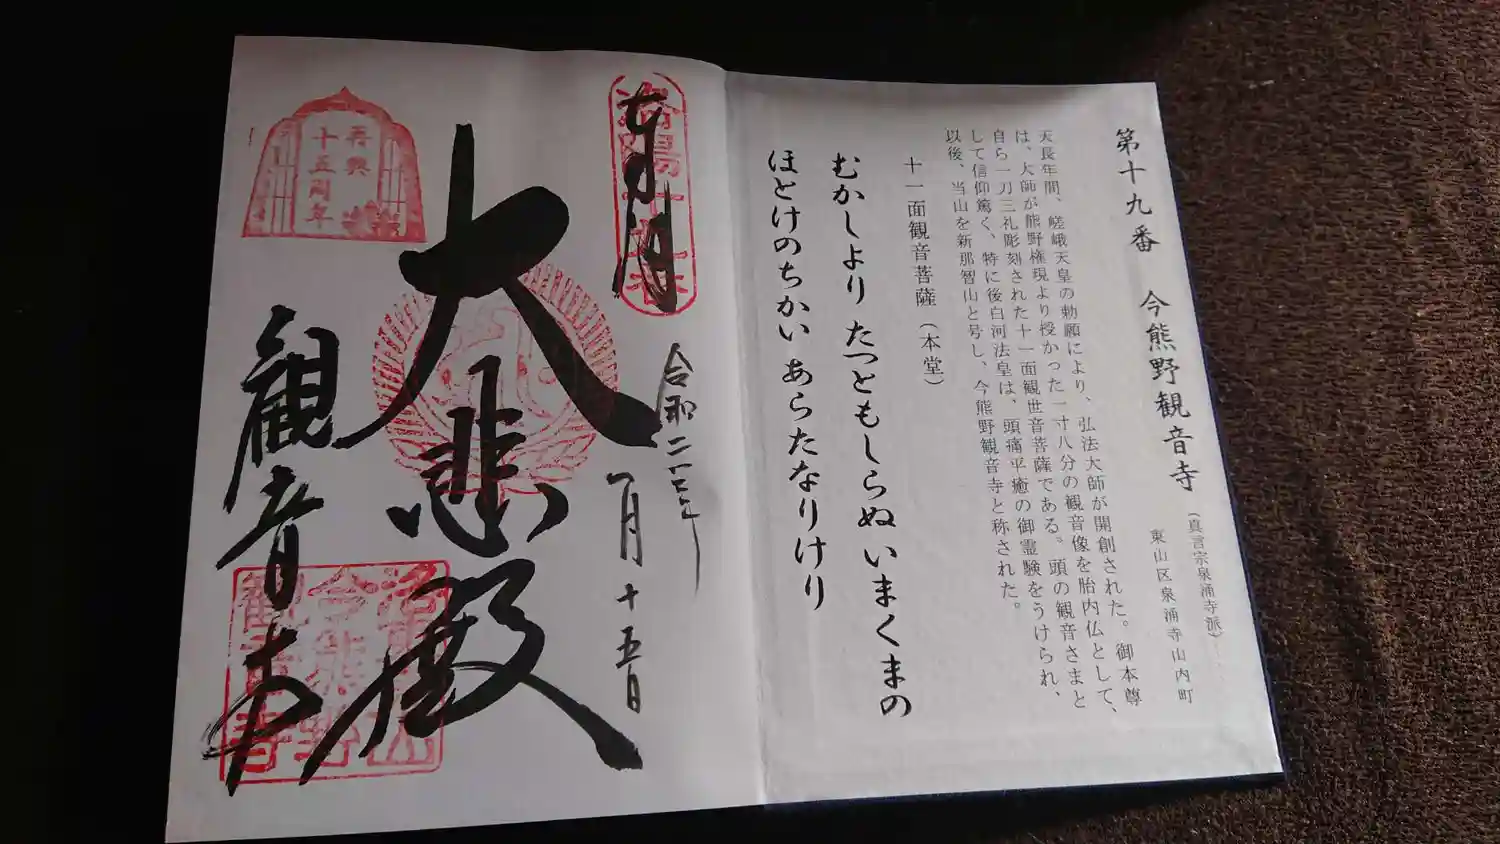 第十九番 今熊野観音寺
(真言宗泉涌寺派)
東山区泉涌寺山内町
天長年間、嵯峨天皇の勅願により、弘法大師が開創された。御本尊
は、大師が熊野権現より授かった一寸八分の観音像を胎内仏として、
自ら一刀三礼彫刻された十一面観世音菩薩である。頭の観音さまと
して信仰篤く、特に後白河法皇は、頭痛平癒の御霊験をうけられ、
以後、当山を新那智山と号し、今熊野観音寺と称された。
十一面観音菩薩(本堂)
むかしより たつともしらぬ いまくまの
ほとけのちかい あらたなりけり
洛陽十九番
奉拝
令和二年
一月十五日
大悲殿
再興
十五周年
観音寺